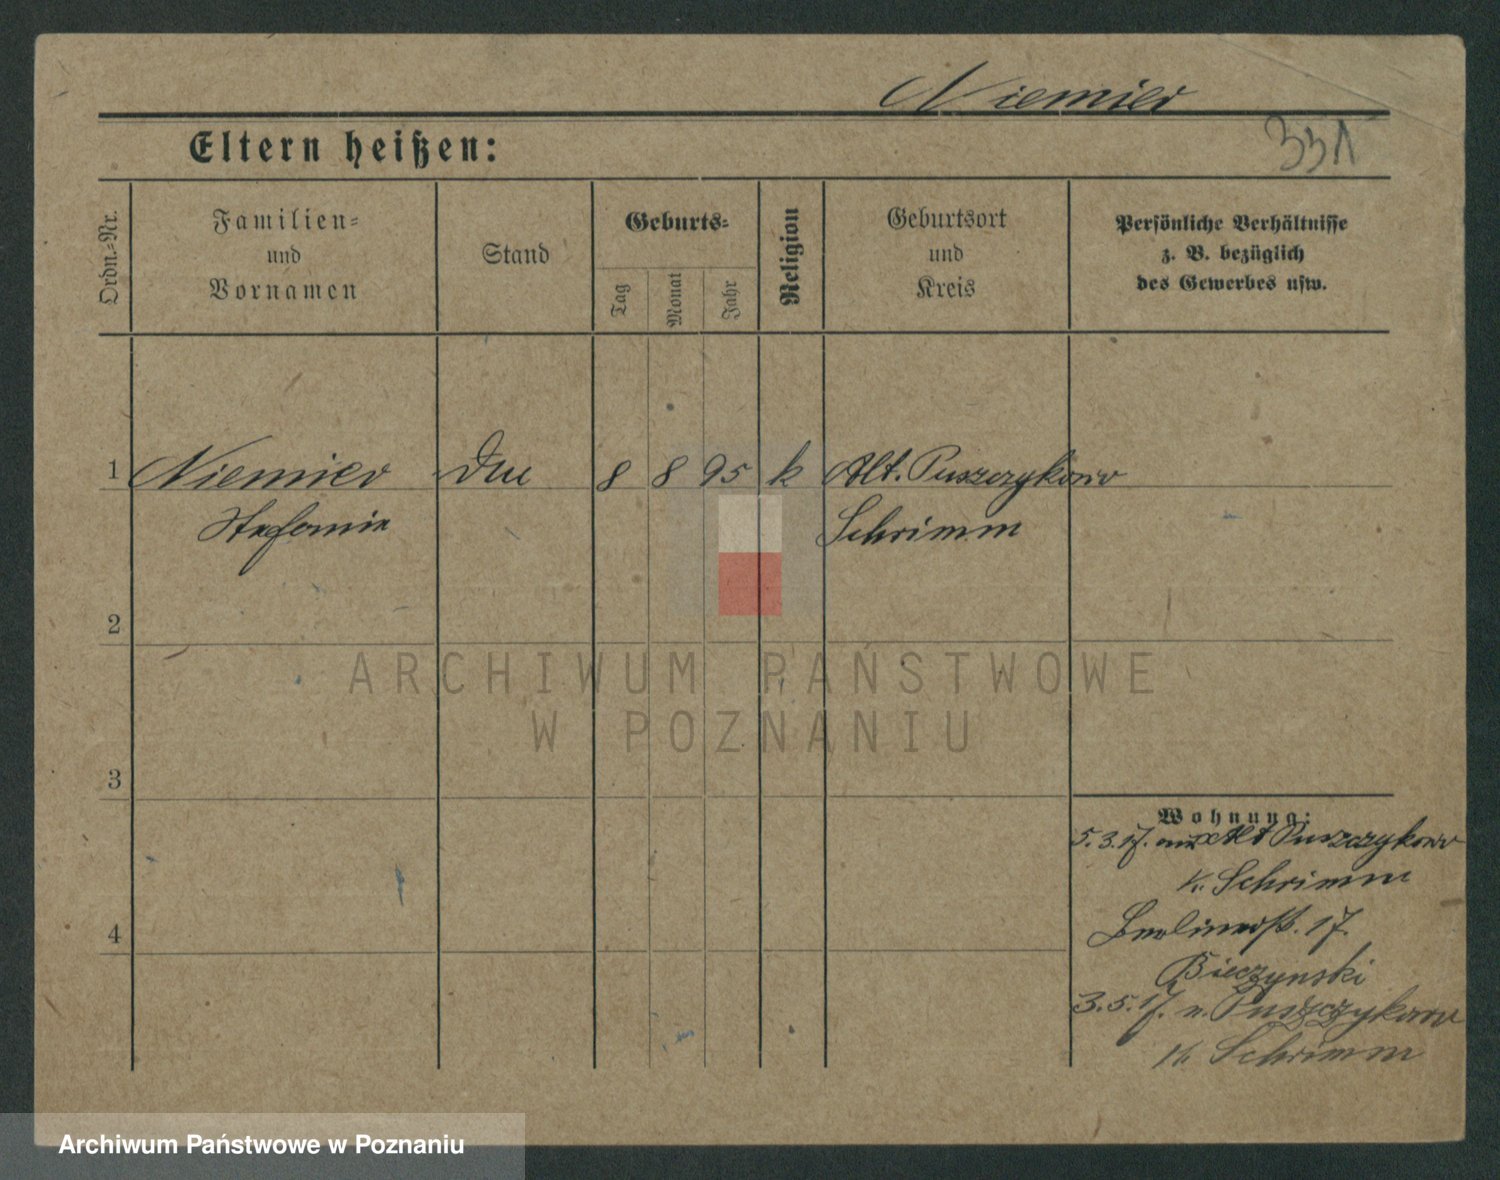 Niemier
331
Eltern heißen:
Ordn.-Nr.
Familien-
und
Vornamen
Stand
Geburts-
Tag
Monat
Jahr
Religion
Geburtsort
und
Kreis
Persönliche Verhältnisse
z. B. bezüglich
des Gewerbes usw.
1 Niemier 8 8 95 k Alt. Puszczykowo
Stefanie Schrimm
2
ARCHIWUM PAŃSTWOWE
W POZNANIU
3
Wohnung:
5.3.17. aus Alt Puszczykowo
K. Schrimm
4
Berlinerstr. 17.
Bieczynski
3.5.17. n. Puszczykowo
K. Schrimm
Archiwum Państwowe w Poznaniu